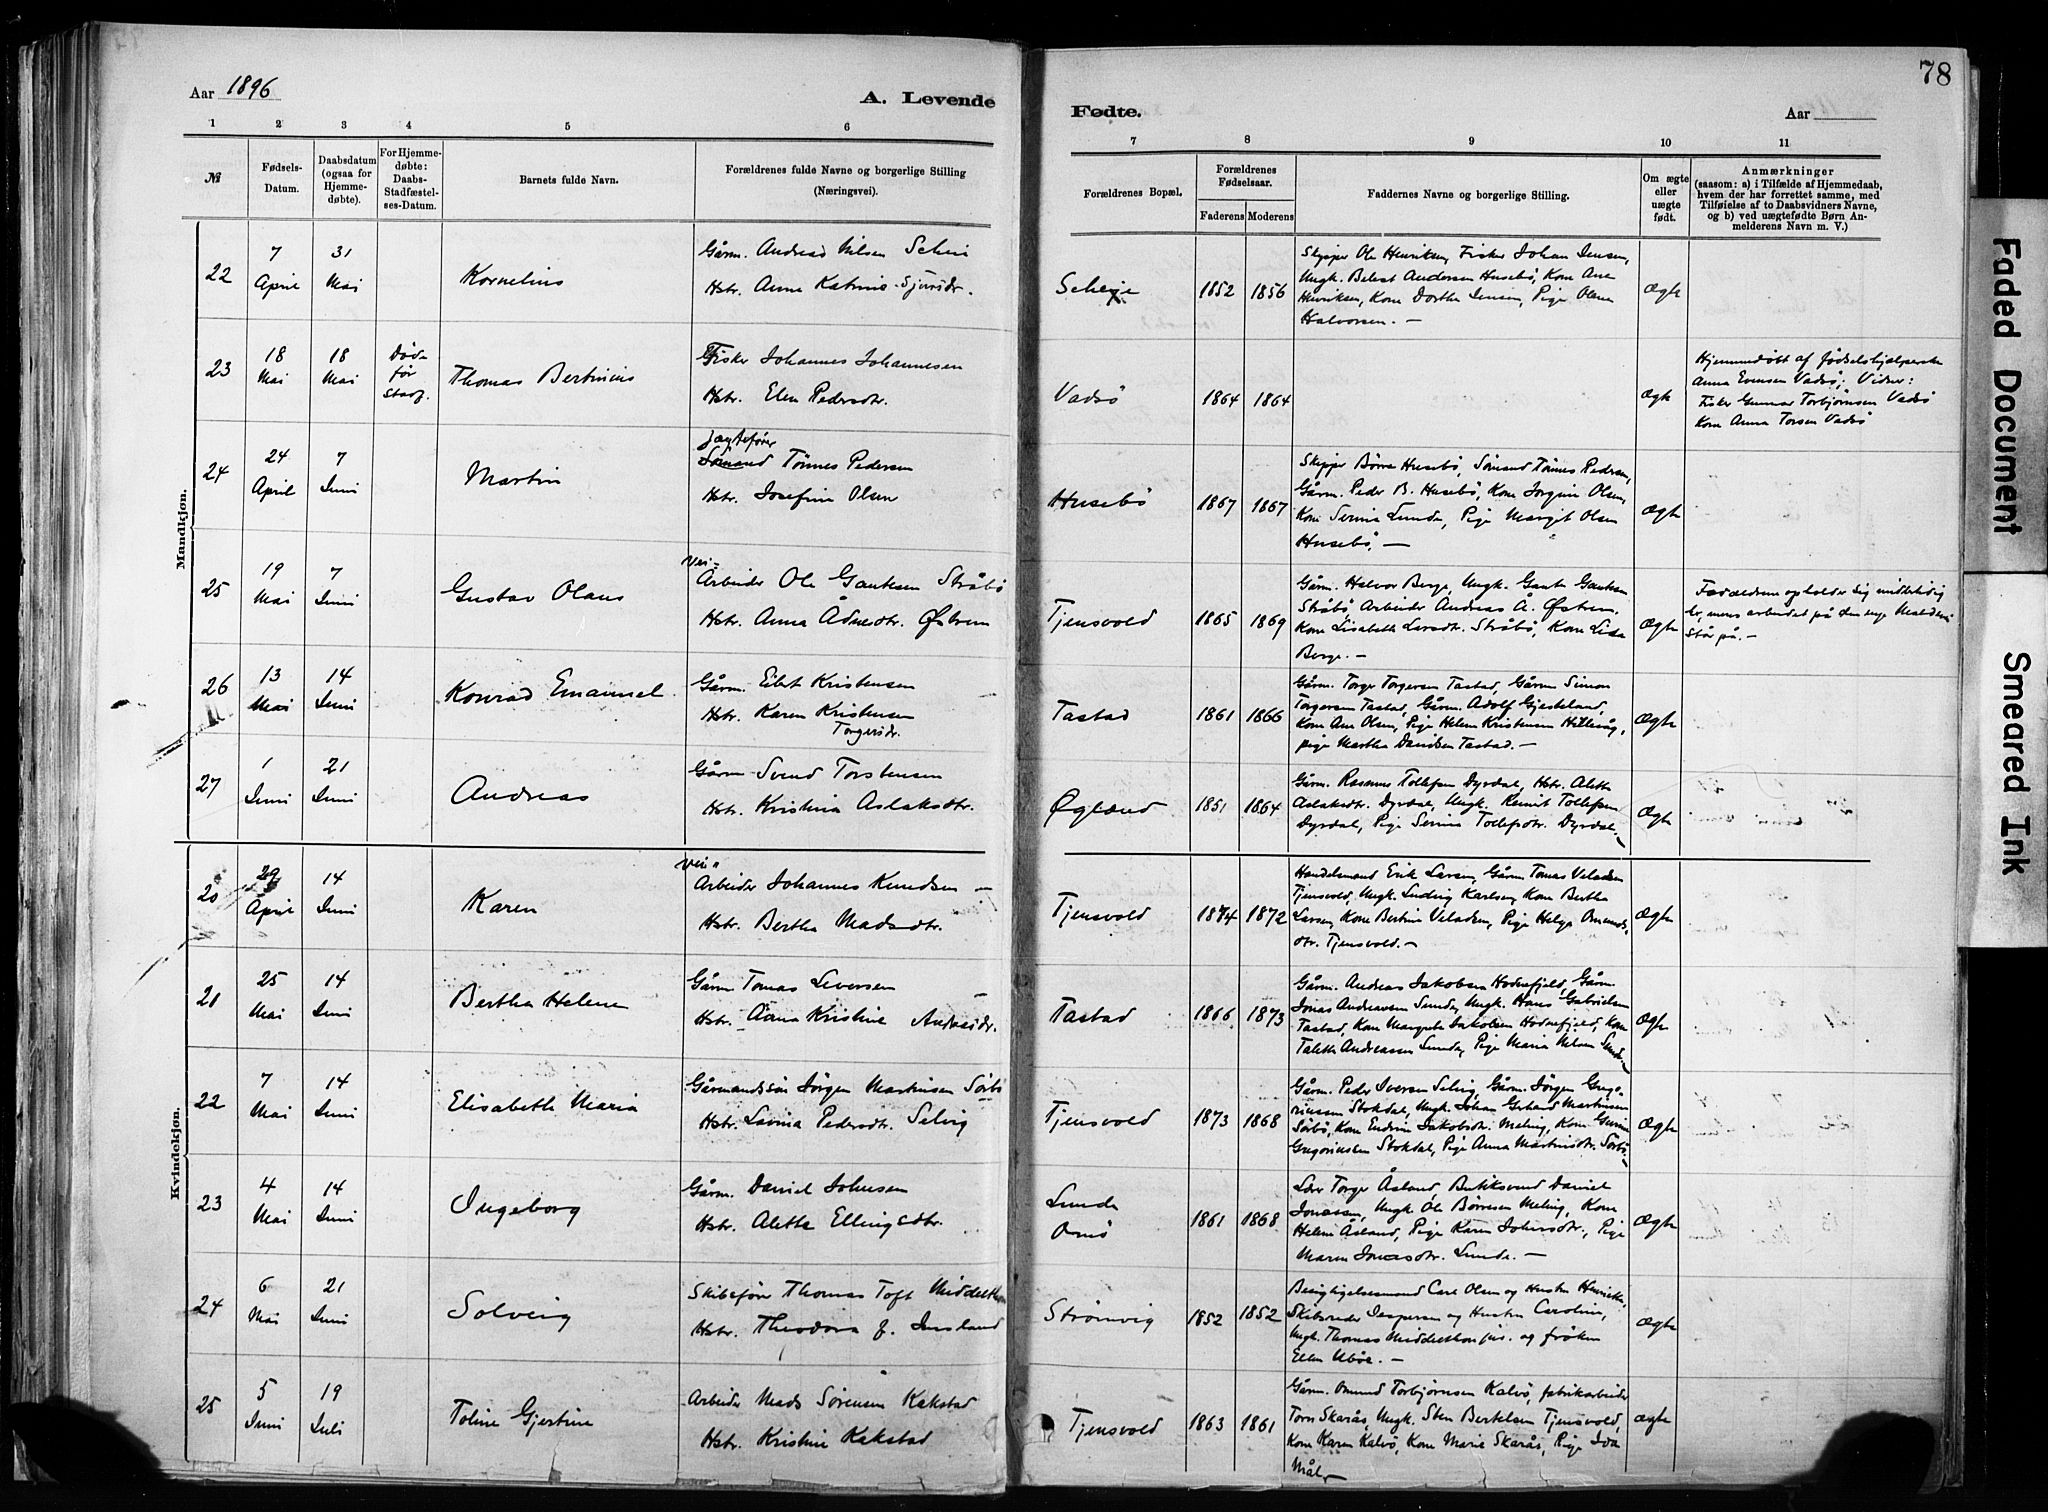 78
Aar 1896
A. Levende
Fødte.
Aar
1 2 3 4 5 6 7 8 9 10 11
№
Fødsels-
Datum.
Daabsdatum
(ogsaa for
Hjemme-
døbte).
For Hjemme-
døbte:
Daabs-
Stadfæstel-
ses-Datum.
Barnets fulde Navn.
Forældrenes fulde Navne og borgerlige Stilling
(Næringsvei).
Forældrenes Bopæl.
Forældrenes
Fødselsaar.
Faderens Moderens
Faddernes Navne og borgerlige Stilling.
Om ægte
eller
uægte
født.
Anmærkninger
(saasom: a) i Tilfælde af Hjemmedaab,
hvem der har forrettet samme, med
Tilføielse af to Daabsvidners Navne,
og b) ved uægtefødte Børn An-
melderens Navn m. V.)
Mandkjøn.
22
7
April
31
Mai
Kornelius
Gårm. Andreas Nilsen
Hstr. Anna Katrine Sjursdr.
1852 1856
Skipper Ole Henriksen, Fisker Johan Jensen,
Ungk. Andersen Husebö, Kone Ane
Henriksen, Kone Dorthe Jensen, Pige Olene
Halvorsen. —
Ægte
23
18
Mai
18
Mai
Døde
før
Stadf.
Thomas Bertinius
Fisker Johannes Johannesen
Hstr. Elen Pedersdtr.
Vadsö
1864 1864
Ægte
Hjemmedöbt af födselshjælperske
Anna Evensen Vadsö; Vidner:
Fisker Gunnar Torbjörnsen Vadsö
Kone Anna Torsen Vadsö
24
24
April
7
Juni
Martin
Jagtefører
Sömand Tönnes Pedersen
Hstr. Josefine Olsen
Husebö
1867 1867
Skipper Börre Husebö, Sömand Tönnes Pedersen,
Gårm. Peder B. Husebö, Kone Jorgine Olsen,
Kone Serina Lunde, Pige Margit Olsen
Husebö, —
Ægte
25
19
Mai
7
Juni
Gustav Olaus
Vei-
Arbeider Ole Gautesen Stråbö
Hstr. Anna Ådnesdtr. Østrem
Tjensvold
1865 1869
Gårm. Halvor Berge, Ungk. Gaute Gautesen
Stråbö, Arbeider Andreas Å. Østrem,
Kone Lisabeth Larsdtr. Stråbö, Kone Lisa
Berge. —
Ægte
Forældrene opholder sig midlertidig
her, mens arbeidet på den nye
står på. —
26
13
Mai
14
Juni
Konrad Emanuel
Gårm. Eilert Kristensen
Hstr. Karen Kristensen
Torgersdr.
Tastad
1861 1866
Gårm. Torger Torgersen Tastad, Gårm Simon
Torgersen Tastad, Gårm. Adolf Gjesteland,
Kone Ane Olsen, Pige Helene Kristensen
pige Martha Danielsen Tastad. —
Ægte
27
1
Juni
21
Juni
Andreas
Gårm Svend Torstensen
Hstr. Kristina Aslaksdtr.
Øgland
1851 1864
Gårm. Rasmus Tollefsen Dyrdal, Hstr. Alette
Aslaksdtr. Dyrdal, Ungk. Tollefsen
Dyrdal, Pige Serine Tollefsdtr. Dyrdal.
Ægte
Kvindekjøn.
20
29
April
14
Juni
Karen
Vei-
Arbeider Johannes Knudsen —
Hstr. Bertha Madsdtr.
Tjensvold
1874 1872
Handelsmand Erik Larsen, Gårm Tomas Veladsen
Tjensvold, Ungk. Ludvig Karlsen, Kone Bertha
Larsen, Kone Bertine Veladsen, Pige Helga Omunds-
dtr. Tjensvold. —
Ægte
21
25
Mai
14
Juni
Bertha Helene
Gårm Tomas Siversen —
Hstr. Anna Kristine Andreasdr.
Tastad
1866 1873
Gårm. Andreas Jakobsen Hodnefjeld, Gårm
Jonas Andreassen Lunde, Ungk. Hans Gabrielsen
Tastad, Kone Margrete Jakobsen Hodnefjeld, Kone
Talette Andreassen Lunde, Pige Maria Nilsen Lunde
Ægte
22
7
Mai
14
Juni
Elisabeth Maria
Gårmandssön Jörgen Martinsen Sörbö
Hstr. Lavina Pedersdtr. Selvig
Tjensvold
1873 1868
Gårm. Peder Iversen Selvig, Gårm. Jörgen Grego-
riussen Stokdal, Ungk. Johan Gerhard Martinsen
Sörbö, Kone Endrine Jakobsdtr. Meling, Kone Gurine
Gregoriussen Stokdal, Pige Anna Martinsdtr. Sörbö
Ægte
23
4
Mai
14
Juni
Ingeborg
Gårm. Daniel Johnsen
Hstr. Alette Ellingsdtr.
Lunde
Omö
1861 1868
Lær Torger Åsland, Butiksvend Daniel
Jonassen, Ungk Ole Börresen Meling, Kone
Helene Åsland, Pige Karen Johnsdtr., Pige
Maren Jonasdtr. Lunde. —
Ægte
24
6
Mai
21
Juni
Solveig
Skibsfører Thomas Toft Middelthon
Hstr. Theodora f. Jusland
Strömvig
1852 1852
Besigtigelsesmand Carl Olsen og Hustru Henrikke,
Skibsreder Jespersen og Hustru Caroline,
Ungk. Thomas Middelthon jun. og frøken
Ellen Uböe. —
Ægte
25
5
Juni
19
Juli
Toline Gjertine
Arbeider Mads Sörensen Kakstad
Hstr. Kristine Kakstad
Tjensvold
1863 1861
Gårm. Omund Torbjörnsen Kalvö, fabrikarbeider
Torn Skarås, Ungk. Sten Bertelsen Tjensvold,
Kone Karen Kalvö, Kone Marie Skarås, Pige Ida
Mål.
ægte
Faded Document
Smeared Ink